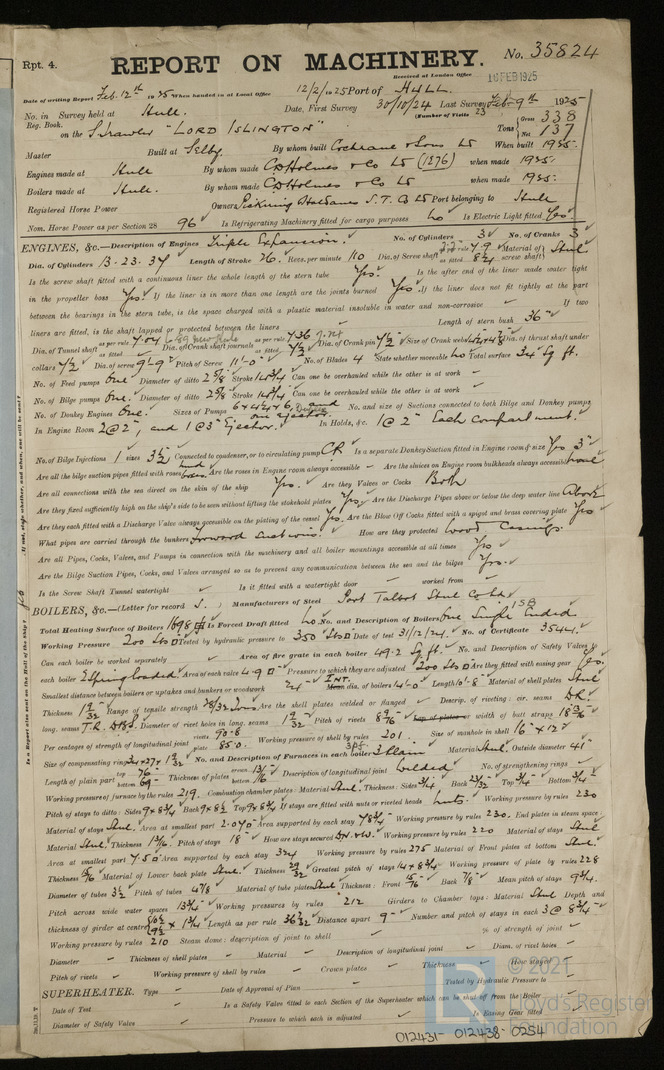 Rpt. 4.
REPORT ON MACHINERY. No. 35824
Received at London Office 10 FEB 1925
Date of writing Report Feb. 12th 1925 When handed in at Local Office 12/2/1925 Port of HULL.
No. in Survey held at Hull. Date, First Survey 30/10/24 Last Survey Feb 9th 1925
Reg. Book. (Number of Visits 23
on the S. Trawler "LORD ISLINGTON" Tons Gross 338 Net 137
Master Built at Selby. By whom built Cochrane & Sons Ld When built 1925.
Engines made at Hull By whom made C D Holmes & Co Ld (1276) when made 1925.
Boilers made at Hull. By whom made C D Holmes & Co Ld when made 1925.
Registered Horse Power Owners Pickering & Haldanes S. T. Co Ld Port belonging to Hull
Nom. Horse Power as per Section 28 96 Is Refrigerating Machinery fitted for cargo purposes No Is Electric Light fitted Yes.
ENGINES, &c.—Description of Engines Triple Expansion. No. of Cylinders 3 No. of Cranks 3
Dia. of Cylinders 13-23-37 Length of Stroke 26. Revs. per minute 110 Dia. of Screw shaft as per rule 7.9 as fitted 8¼ Material of screw shaft Steel
Is the screw shaft fitted with a continuous liner the whole length of the stern tube Yes. Is the after end of the liner made water tight
in the propeller boss Yes. If the liner is in more than one length are the joints burned Yes. If the liner does not fit tightly at the part
between the bearings in the stern tube, is the space charged with a plastic material insoluble in water and non-corrosive ✓ If two
liners are fitted, is the shaft lapped or protected between the liners ✓ Length of stern bush 36"
Dia. of Tunnel shaft as per rule 7.04 as fitted Dia. of Crank shaft journals as per rule 7.36 as fitted 7½ Dia. of Crank pin 7½ Size of Crank webs Dia. of thrust shaft under
collars 7½ Dia. of screw 9'-9" Pitch of Screw 11'-0" No. of Blades 4 State whether moveable No Total surface 34 Sq ft.
No. of Feed pumps One Diameter of ditto 2⅝ Stroke 14¾ Can one be overhauled while the other is at work
No. of Bilge pumps One Diameter of ditto 2⅝ Stroke 14¾ Can one be overhauled while the other is at work
No. of Donkey Engines One. Sizes of Pumps 6 x 4½ x 6 Duplex and one ejector No. and size of Suctions connected to both Bilge and Donkey pumps
In Engine Room 2 @ 2", and 1 @ 3" Ejector. In Holds, &c. 1 @ 2" Each compartment.
No. of Bilge Injections 1 sizes 3½ Connected to condenser, or to circulating pump CP Is a separate Donkey Suction fitted in Engine room & size Yes 3"
Are all the bilge suction pipes fitted with roses Are the roses in Engine room always accessible Are the sluices on Engine room bulkheads always accessible None
Are all connections with the sea direct on the skin of the ship Yes. Are they Valves or Cocks Both
Are they fixed sufficiently high on the ship's side to be seen without lifting the stokehold plates Yes. Are the Discharge Pipes above or below the deep water line Above
Are they each fitted with a Discharge Valve always accessible on the plating of the vessel Yes. Are the Blow Off Cocks fitted with a spigot and brass covering plate Yes
What pipes are carried through the bunkers Forward Suctions. How are they protected Wood Casings.
Are all Pipes, Cocks, Valves, and Pumps in connection with the machinery and all boiler mountings accessible at all times Yes
Are the Bilge Suction Pipes, Cocks, and Valves arranged so as to prevent any communication between the sea and the bilges Yes.
Is the Screw Shaft Tunnel watertight Is it fitted with a watertight door worked from
BOILERS, &c.—(Letter for record S.) Manufacturers of Steel Port Talbot Steel Co Ld.
Total Heating Surface of Boilers 1698 Is Forced Draft fitted No No. and Description of Boilers One Single Ended 1SB
Working Pressure 200 lbs Tested by hydraulic pressure to 350 lbs Date of test 31/12/24. No. of Certificate 3544.
Can each boiler be worked separately Area of fire grate in each boiler 49.2 Sq. ft. No. and Description of Safety Valves to
each boiler 2 Spring loaded. Area of each valve 4.90 Pressure to which they are adjusted 200 lbs Are they fitted with easing gear Yes.
Smallest distance between boilers or uptakes and bunkers or woodwork 24" INT. Mean dia. of boilers 14'-0" Length 10'-8" Material of shell plates Steel
Thickness 1 9/32 Range of tensile strength 28/32 tons Are the shell plates welded or flanged Descrip. of riveting: cir. seams DR
long. seams T.R. DBS. Diameter of rivet holes in long. seams 1 9/32 Pitch of rivets 8 9/16 Lap of plates or width of butt straps 18
Per centages of strength of longitudinal joint rivets 90.8 plate 85.0. Working pressure of shell by rules 201 Size of manhole in shell 16" x 12"
Size of compensating ring No. and Description of Furnaces in each boiler 3 Plain Material Steel. Outside diameter 41"
Length of plain part top 76 bottom 69 Thickness of plates crown bottom Description of longitudinal joint Welded No. of strengthening rings
Working pressure of furnace by the rules 219. Combustion chamber plates: Material Steel. Thickness: Sides ¾ Back 23/32 Top ¾ Bottom ¾
Pitch of stays to ditto: Sides 9 x 8¾ Back 9 x 8½ Top 9 x 8¾ If stays are fitted with nuts or riveted heads Nuts. Working pressure by rules 230
Material of stays Steel. Area at smallest part 2.07 Area supported by each stay 78¾ Working pressure by rules 230. End plates in steam space
Material Steel. Thickness Pitch of stays 18" How are stays secured DN & W. Working pressure by rules 220 Material of stays Steel
Area at smallest part 7.50 Area supported by each stay 324 Working pressure by rules 275 Material of Front plates at bottom Steel
Thickness 15/16 Material of Lower back plate Steel. Thickness 29/32 Greatest pitch of stays 14 x 8¾ Working pressure of plate by rules 228
Diameter of tubes 3½ Pitch of tubes 4⅞ Material of tube plates Steel Thickness: Front 15/16 Back ⅞ Mean pitch of stays 9¾.
Pitch across wide water spaces 13¾ Working pressures by rules 212 Girders to Chamber tops: Material Steel Depth and
thickness of girder at centre Length as per rule Distance apart 9" Number and pitch of stays in each 3 @ 8¾
Working pressure by rules 210 Steam dome: description of joint to shell % of strength of joint
Diameter Thickness of shell plates Material Description of longitudinal joint Diam. of rivet holes
Pitch of rivets Working pressure of shell by rules Crown plates Thickness How stayed
SUPERHEATER. Type Date of Approval of Plan Tested by Hydraulic Pressure to
Date of Test Is a Safety Valve fitted to each Section of the Superheater which can be shut off from the Boiler
Diameter of Safety Valve Pressure to which each is adjusted Is Easing Gear fitted
© 2021
Lloyd's Register
Foundation
012431-012438-0254